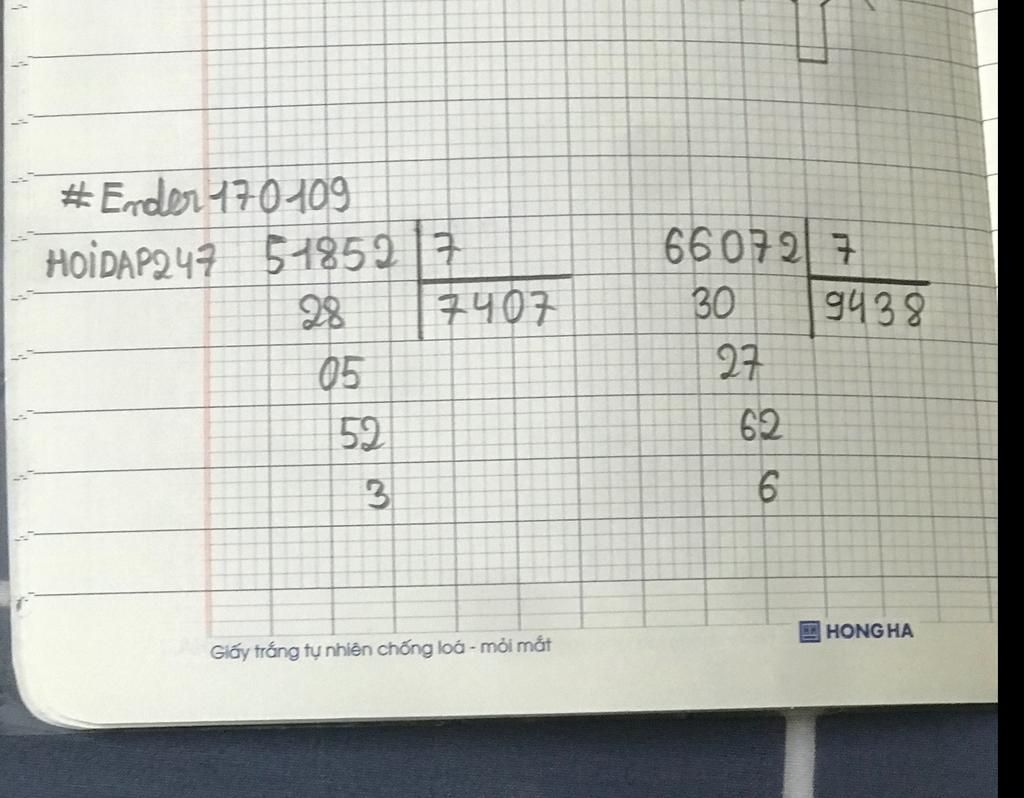 #Ender170109
HOiDAP247 51852 7 66072 7
28 7407 30 9438
05 27
52 62
3 6
Giấy trắng tự nhiên chống loá - mỏi mắt HONG HA